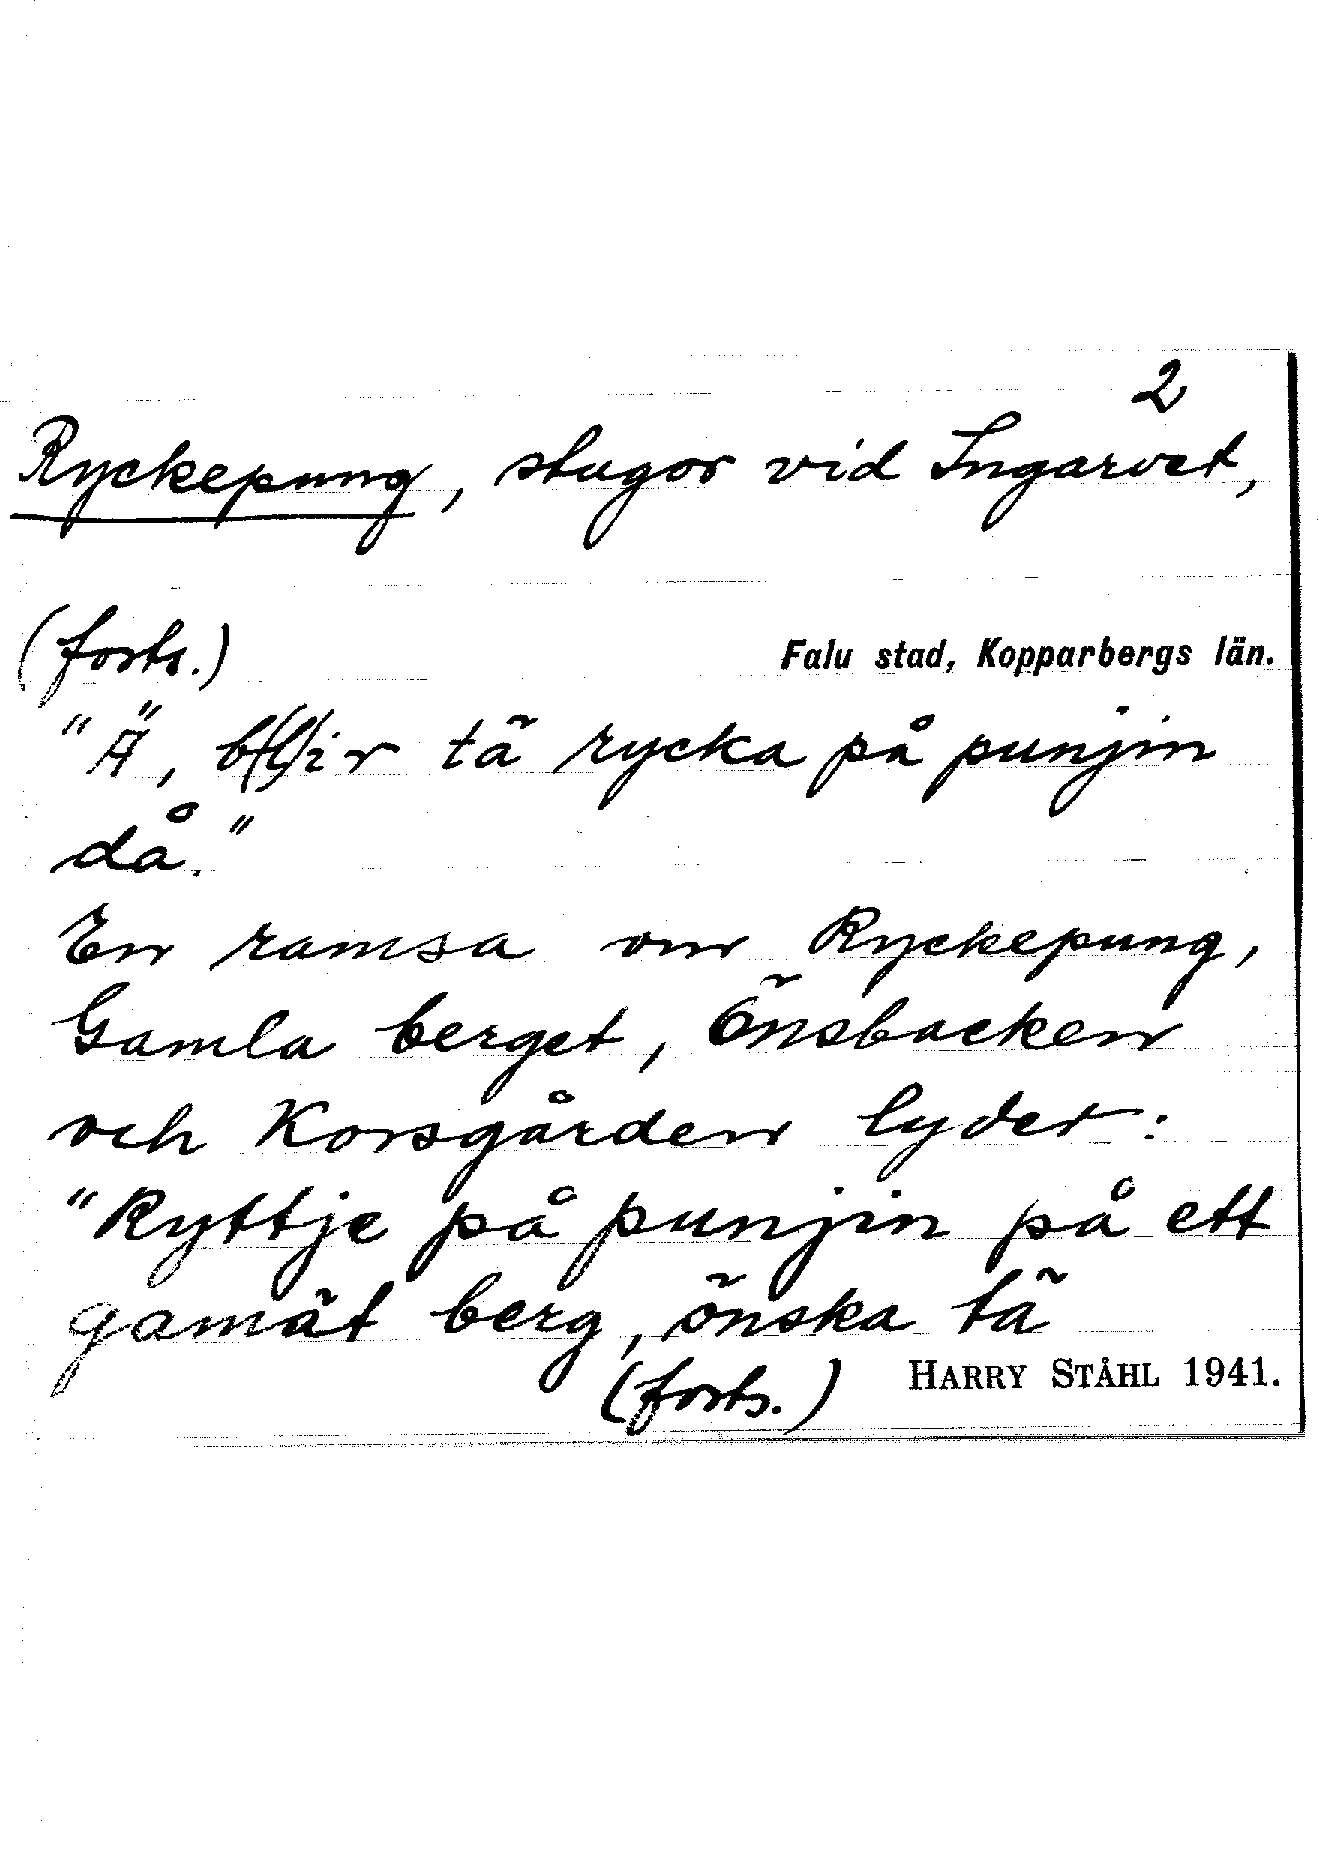 2
Ryckepung, stugor vid Ingarvet,
(forts.)
Falu stad, Kopparbergs län.
"Ä, b(l)ir tä rycka på punjin
då."
En ramsa om Ryckepung,
Gamla berget, Önsbacken
och Korsgården lyder:
"Ryttje på punjin på ett
gamät berg, önska tä
(forts.)
HARRY STÅHL 1941.